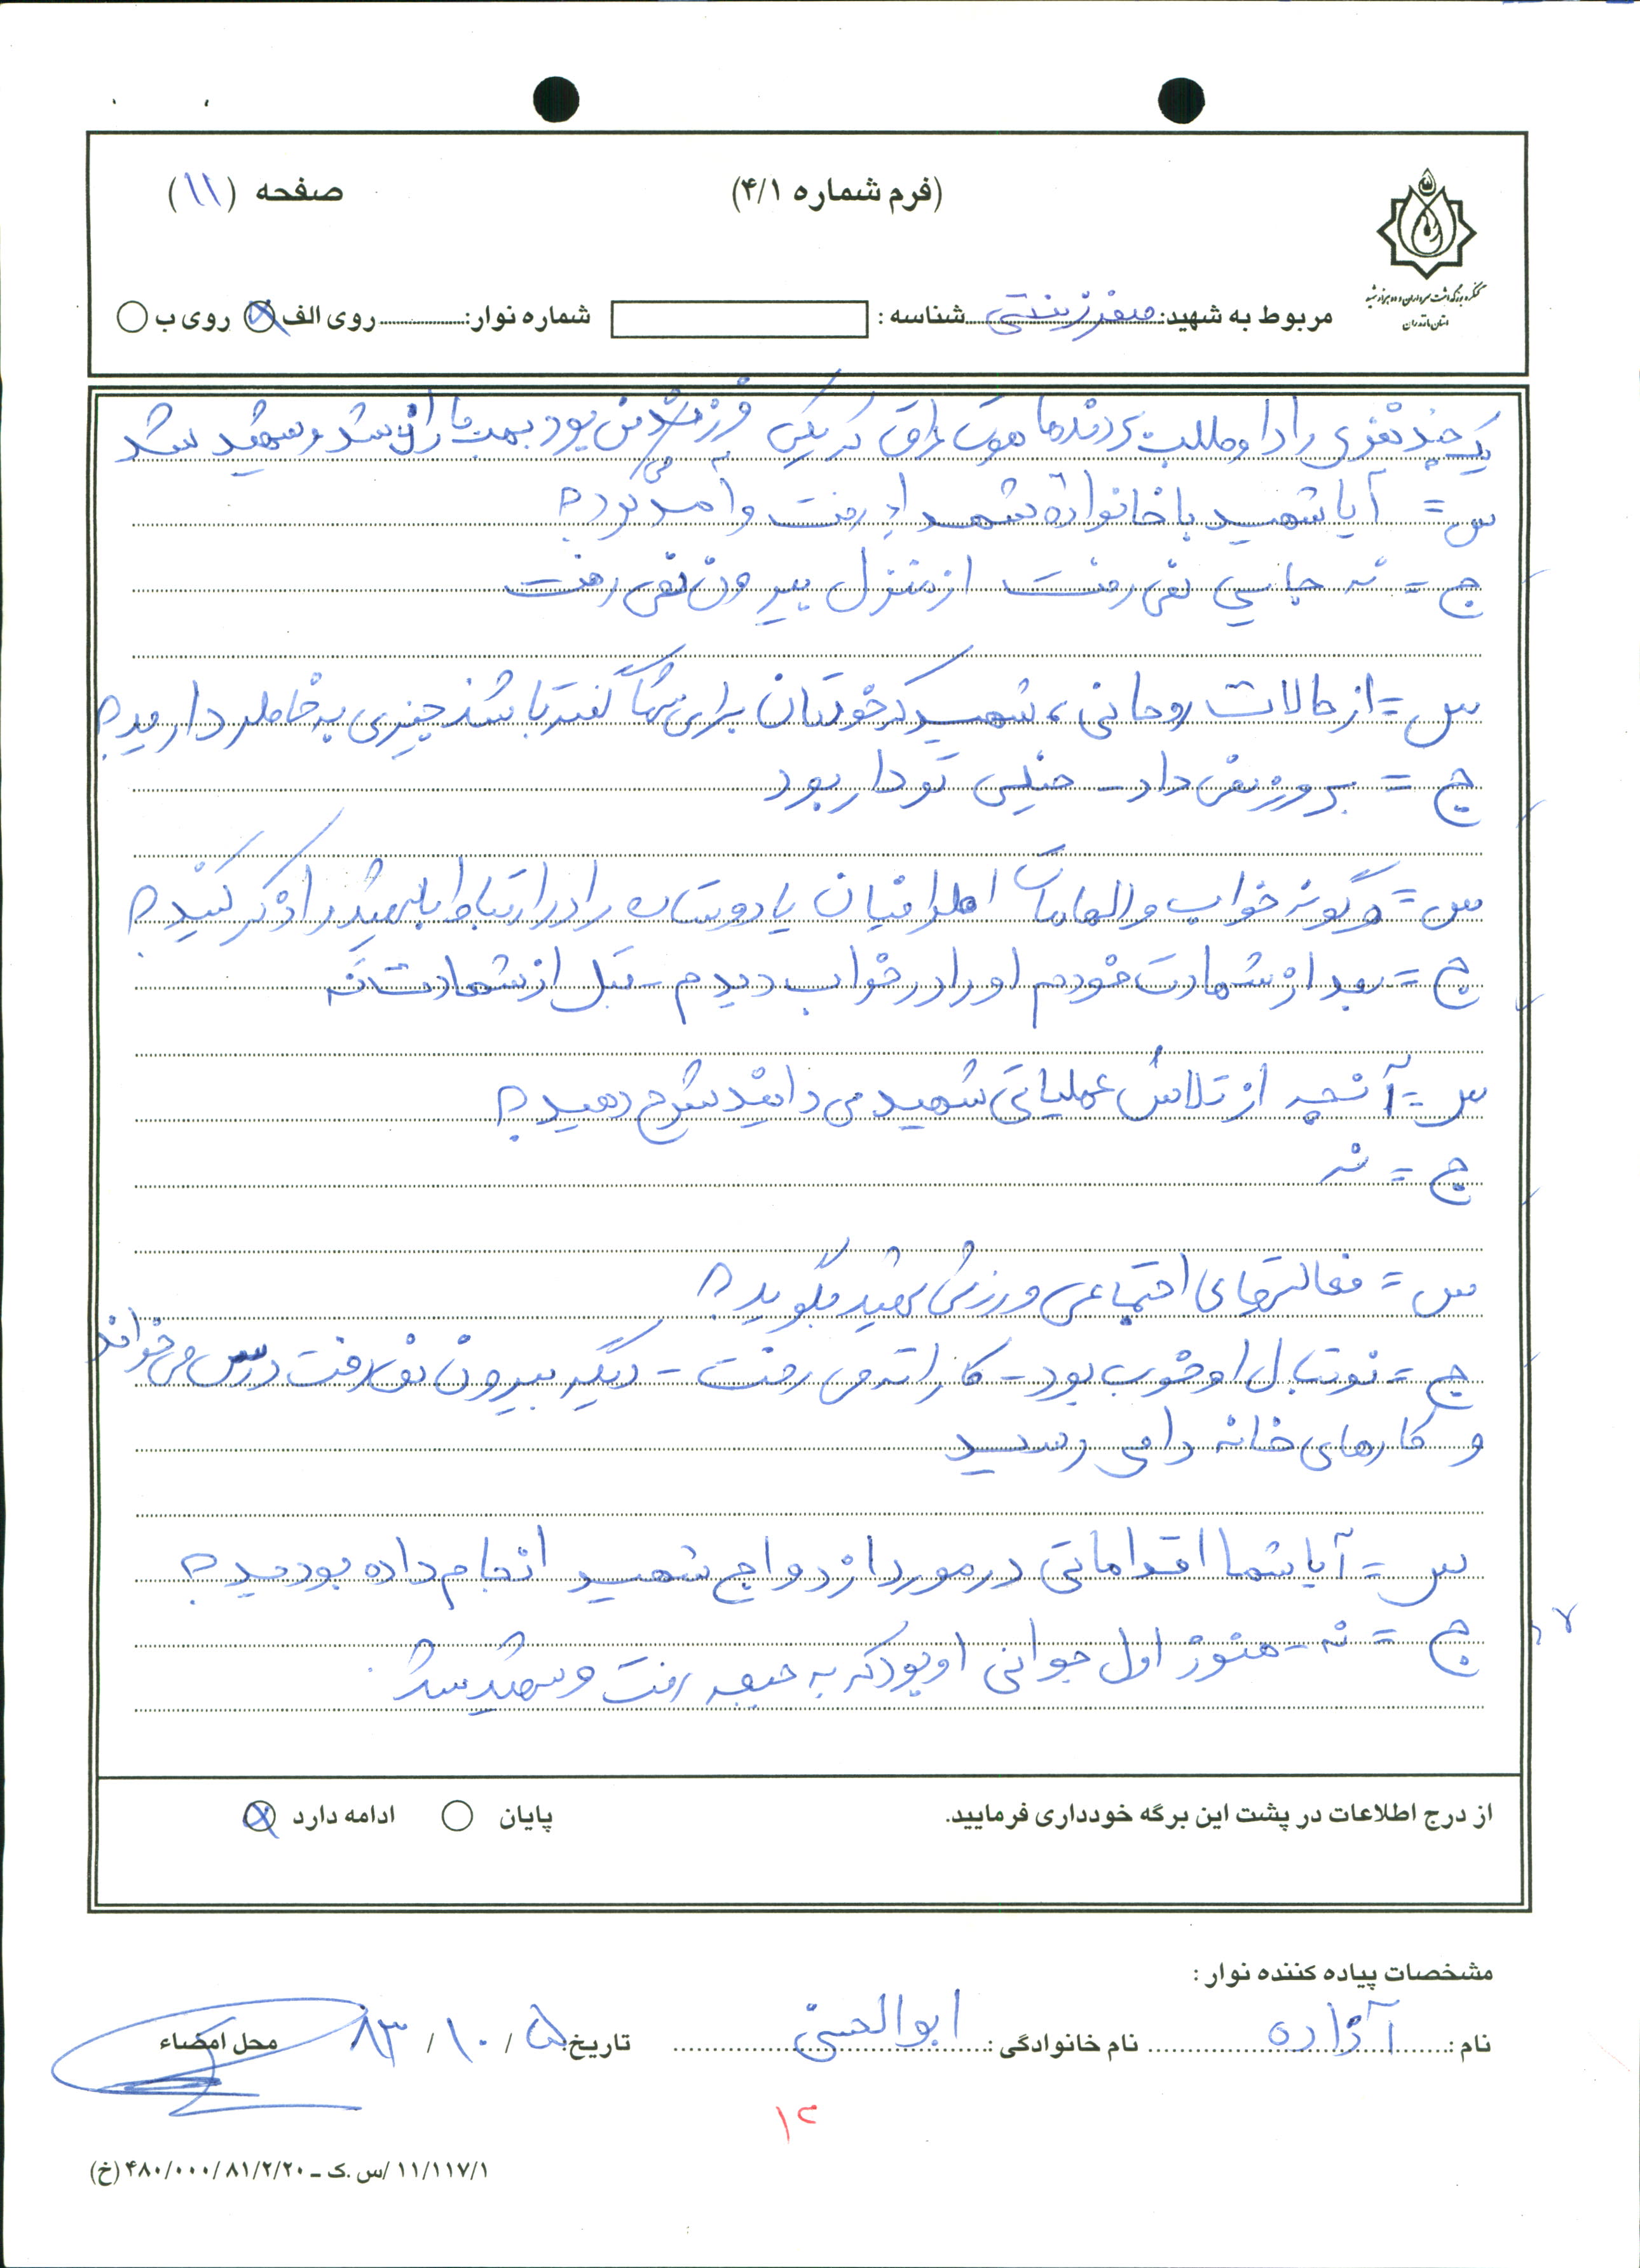 (فرم شماره ۴/۱)
صفحه (۱۱)
کنگره بزرگداشت سرداران و ده هزار شهید
استان مازندران
مربوط به شهید: صفر زینتی شناسه : شماره نوار: روی الف روی ب
یک چند نفری را داوطلب بردند هور عراق که یکی فرزند من بود بمب باران شد و شهید شد
س = آیا شهید با خانواده شهدا رفت و آمد می کرد؟
ج = نه جایی نمی رفت از منزل بیرون نمی رفت
س = از حالات روحانی، شهید که خودتان برای شما گفته باشد چیزی به خاطر دارید؟
ج = بروز نمی داد - خیلی تودار بود
س = هر گونه خواب و الهامات اطرافیان یا دوستان را در ارتباط با شهید را ذکر کنید؟
ج = بعد از شهادت خودم او را در خواب دیدم - قبل از شهادت نه
س = آنچه از تلاش عملیاتی شهید می دانید شرح دهید؟
ج = نه
س = فعالیتهای اجتماعی ورزشی شهید بگویید؟
ج = فوتبال او خوب بود - کاراته می رفت - دیگر بیرون نمی رفت درس می خواند
و کارهای خانه را می رسید
س = آیا شما اقداماتی در مورد ازدواج شهید انجام داده بودید؟
ج = نه - هنوز اول جوانی او بود که به جبهه رفت و شهید شد.
از درج اطلاعات در پشت این برگه خودداری فرمایید.
پایان ادامه دارد
مشخصات پیاده کننده نوار :
نام : آزاده نام خانوادگی : ابوالحسنی تاریخ: ۵ / ۱۰ / ۸۳ محل امضاء
۱۲
۱۱/۱۱۷/۱ /س.ک ـ ۴۸۰/۰۰۰/۸۱/۲/۲۰ (خ)